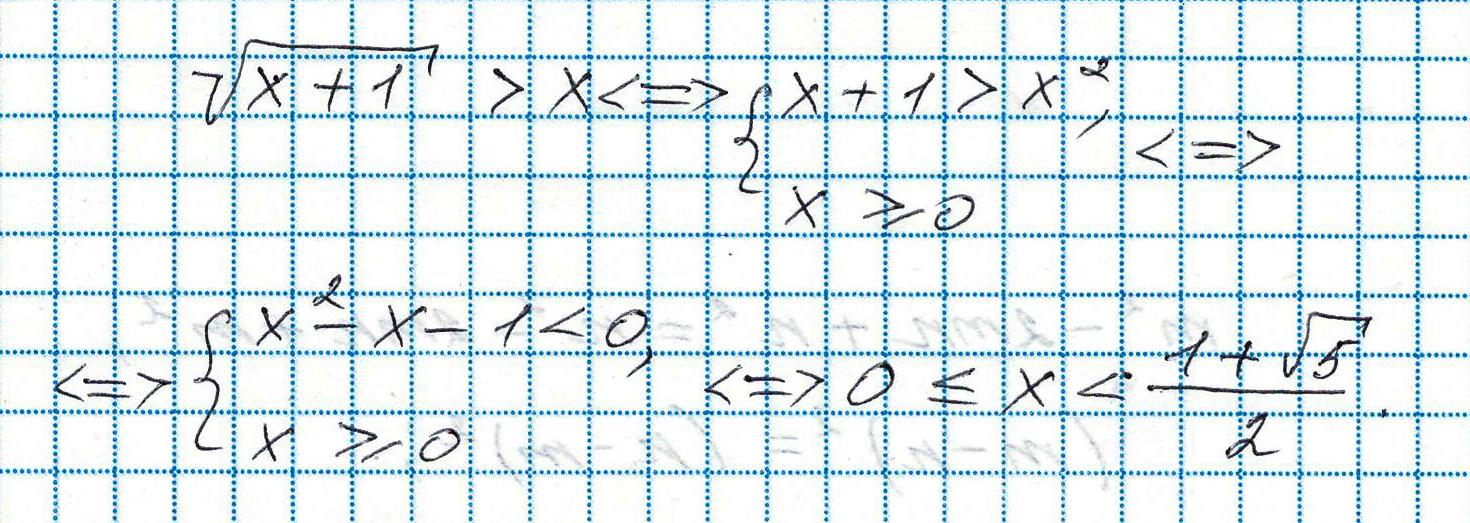 √(x + 1) > x <=> { x + 1 > x², x ≥ 0 <=>
<=> { x² - x - 1 < 0, x ≥ 0 <=> 0 ≤ x < (1 + √5)/2.